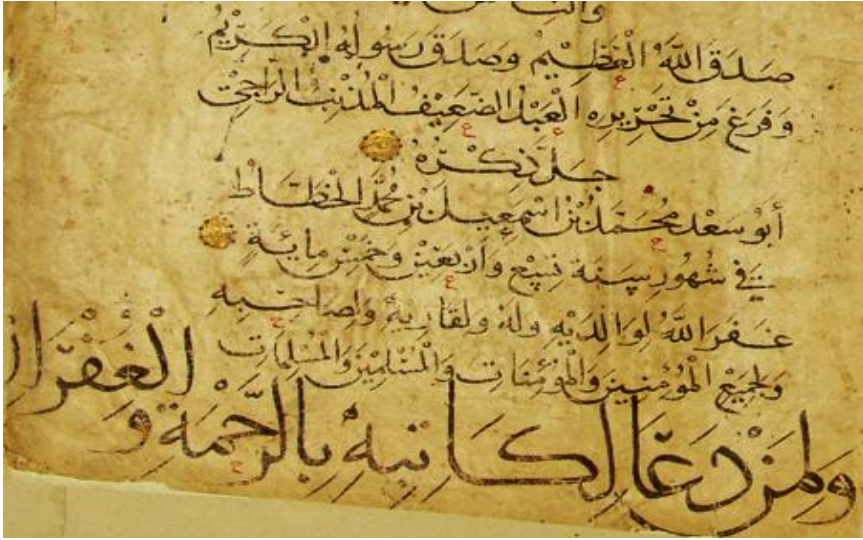 صَدَقَ اللهُ الْعَظِيْمُ وَصَدَقَ رَسُولُهُ الْكَرِيْمُ
وَفَرَغَ مِنْ تَحْرِيرِهِ الْعَبْدُ الضَّعِيفُ الْمُذْنِبُ الرَّاجِي
جَلَّ ذِكْرُهُ
أبُوْ سَعْد مُحَمَّدُ بْنُ اسْمَعِيلَ بْنِ مُحَمَّدٍ الْخَطَّاطُ
فِي شُهُورِ سَنَةِ سَبْعٍ وَأَرْبَعِيْنَ وَخَمْسِ مِائَةٍ
غَفَرَ اللهُ لِوَالِدَيْهِ وَلَهُ وَلِقَارِيهِ وَلِصَاحِبِهِ
وَلِجَمِيْعِ الْمُؤْمِنِينَ وَالْمُؤْمِنَاتِ وَالْمُسْلِمِيْنَ وَالْمُسْلِمَاتِ
وَلِمَنْ دَعَا لِكَاتِبِهِ بِالرَّحْمَةِ وَ الْغُفْرَانِ